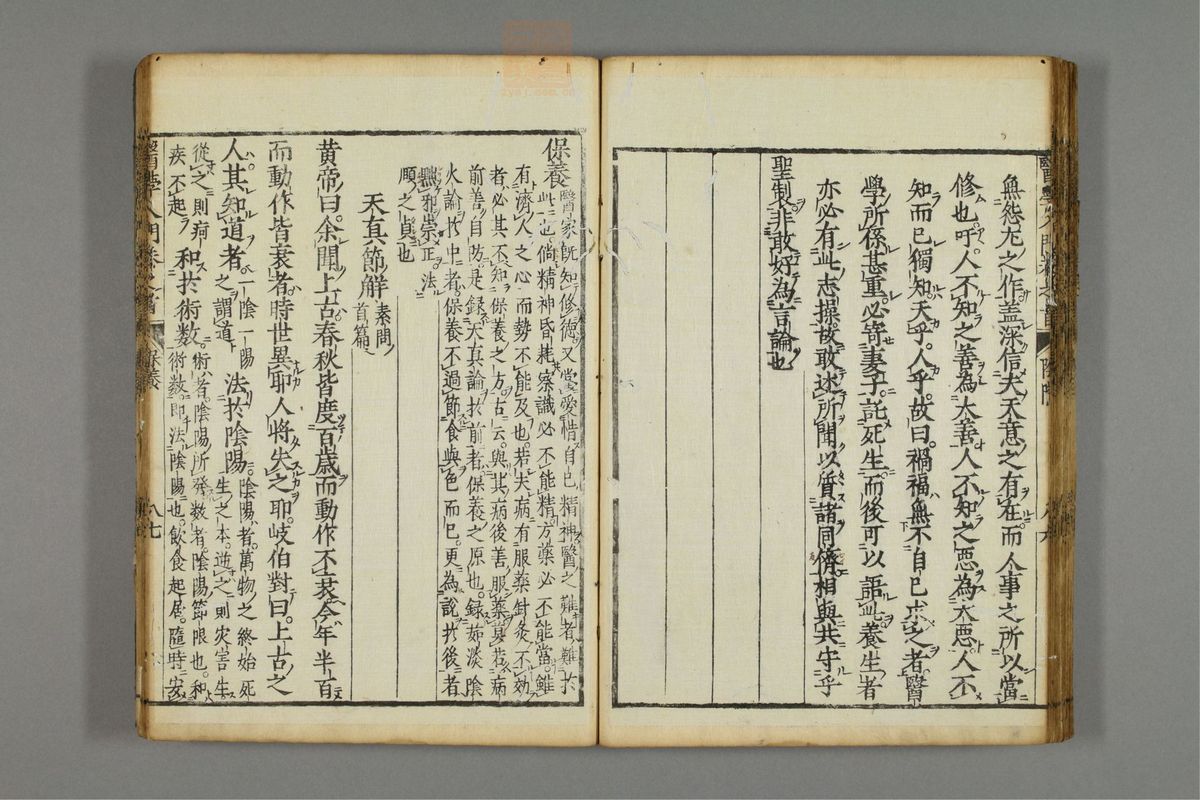 無怨尤之作蓋深信夫天意之有在而人事之所以當
修也吁人不知之善為大善人不知之惡為大惡人不
知而已獨知天乎人乎故曰禍福無不自已求之者醫
學所係甚重必寄妻子託死生而後可以語此養生者
亦必有此志操故敢述所聞以質諸同儕相與共守乎
聖製非敢好為言論也
保養
醫家既知修德又當愛惜自己精神醫之難者難於
此也倘精神昏耗察識必不能精方藥必不能當雖
有濟人之心而勢不能及也若夫病有服藥針灸不効
者必其不知保養之方古云與其病後善服藥莫若病
前善自防是錄天真論於前者保養之原也錄茹淡陰
火論於中者保養不過節食與色而已更為說於後者
黜邪崇正法
頤之貞也
天真節解
素問
首篇
黄帝曰余聞上古春秋皆度百歲而動作不衰今年半百
而動作皆衰者時世異耶人將失之耶岐伯對曰上古之
人其知道者
一陰一陽
之謂道
法於陰陽
陰陽者萬物之終始死
生之本逆之則灾害生
從之則疴
疾不起
和於術數
術者陰陽所發數者陰陽節限也和
術數即法陰陽也飲食起居隨時安
醫學入門卷之首
保養
八七
zysj.com.cn